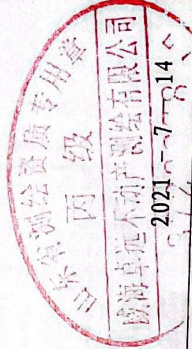 山东省测绘资质专用章
丙级
威海卓远不动产测绘有限公司
2021-7-14